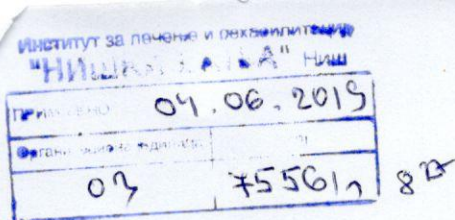 Институт за лечење и рехабилитацију
"НИШКА БАЊА" Ниш
ПРИМЉЕНО: 04.06.2019
Организациона јединица
03 7556/1